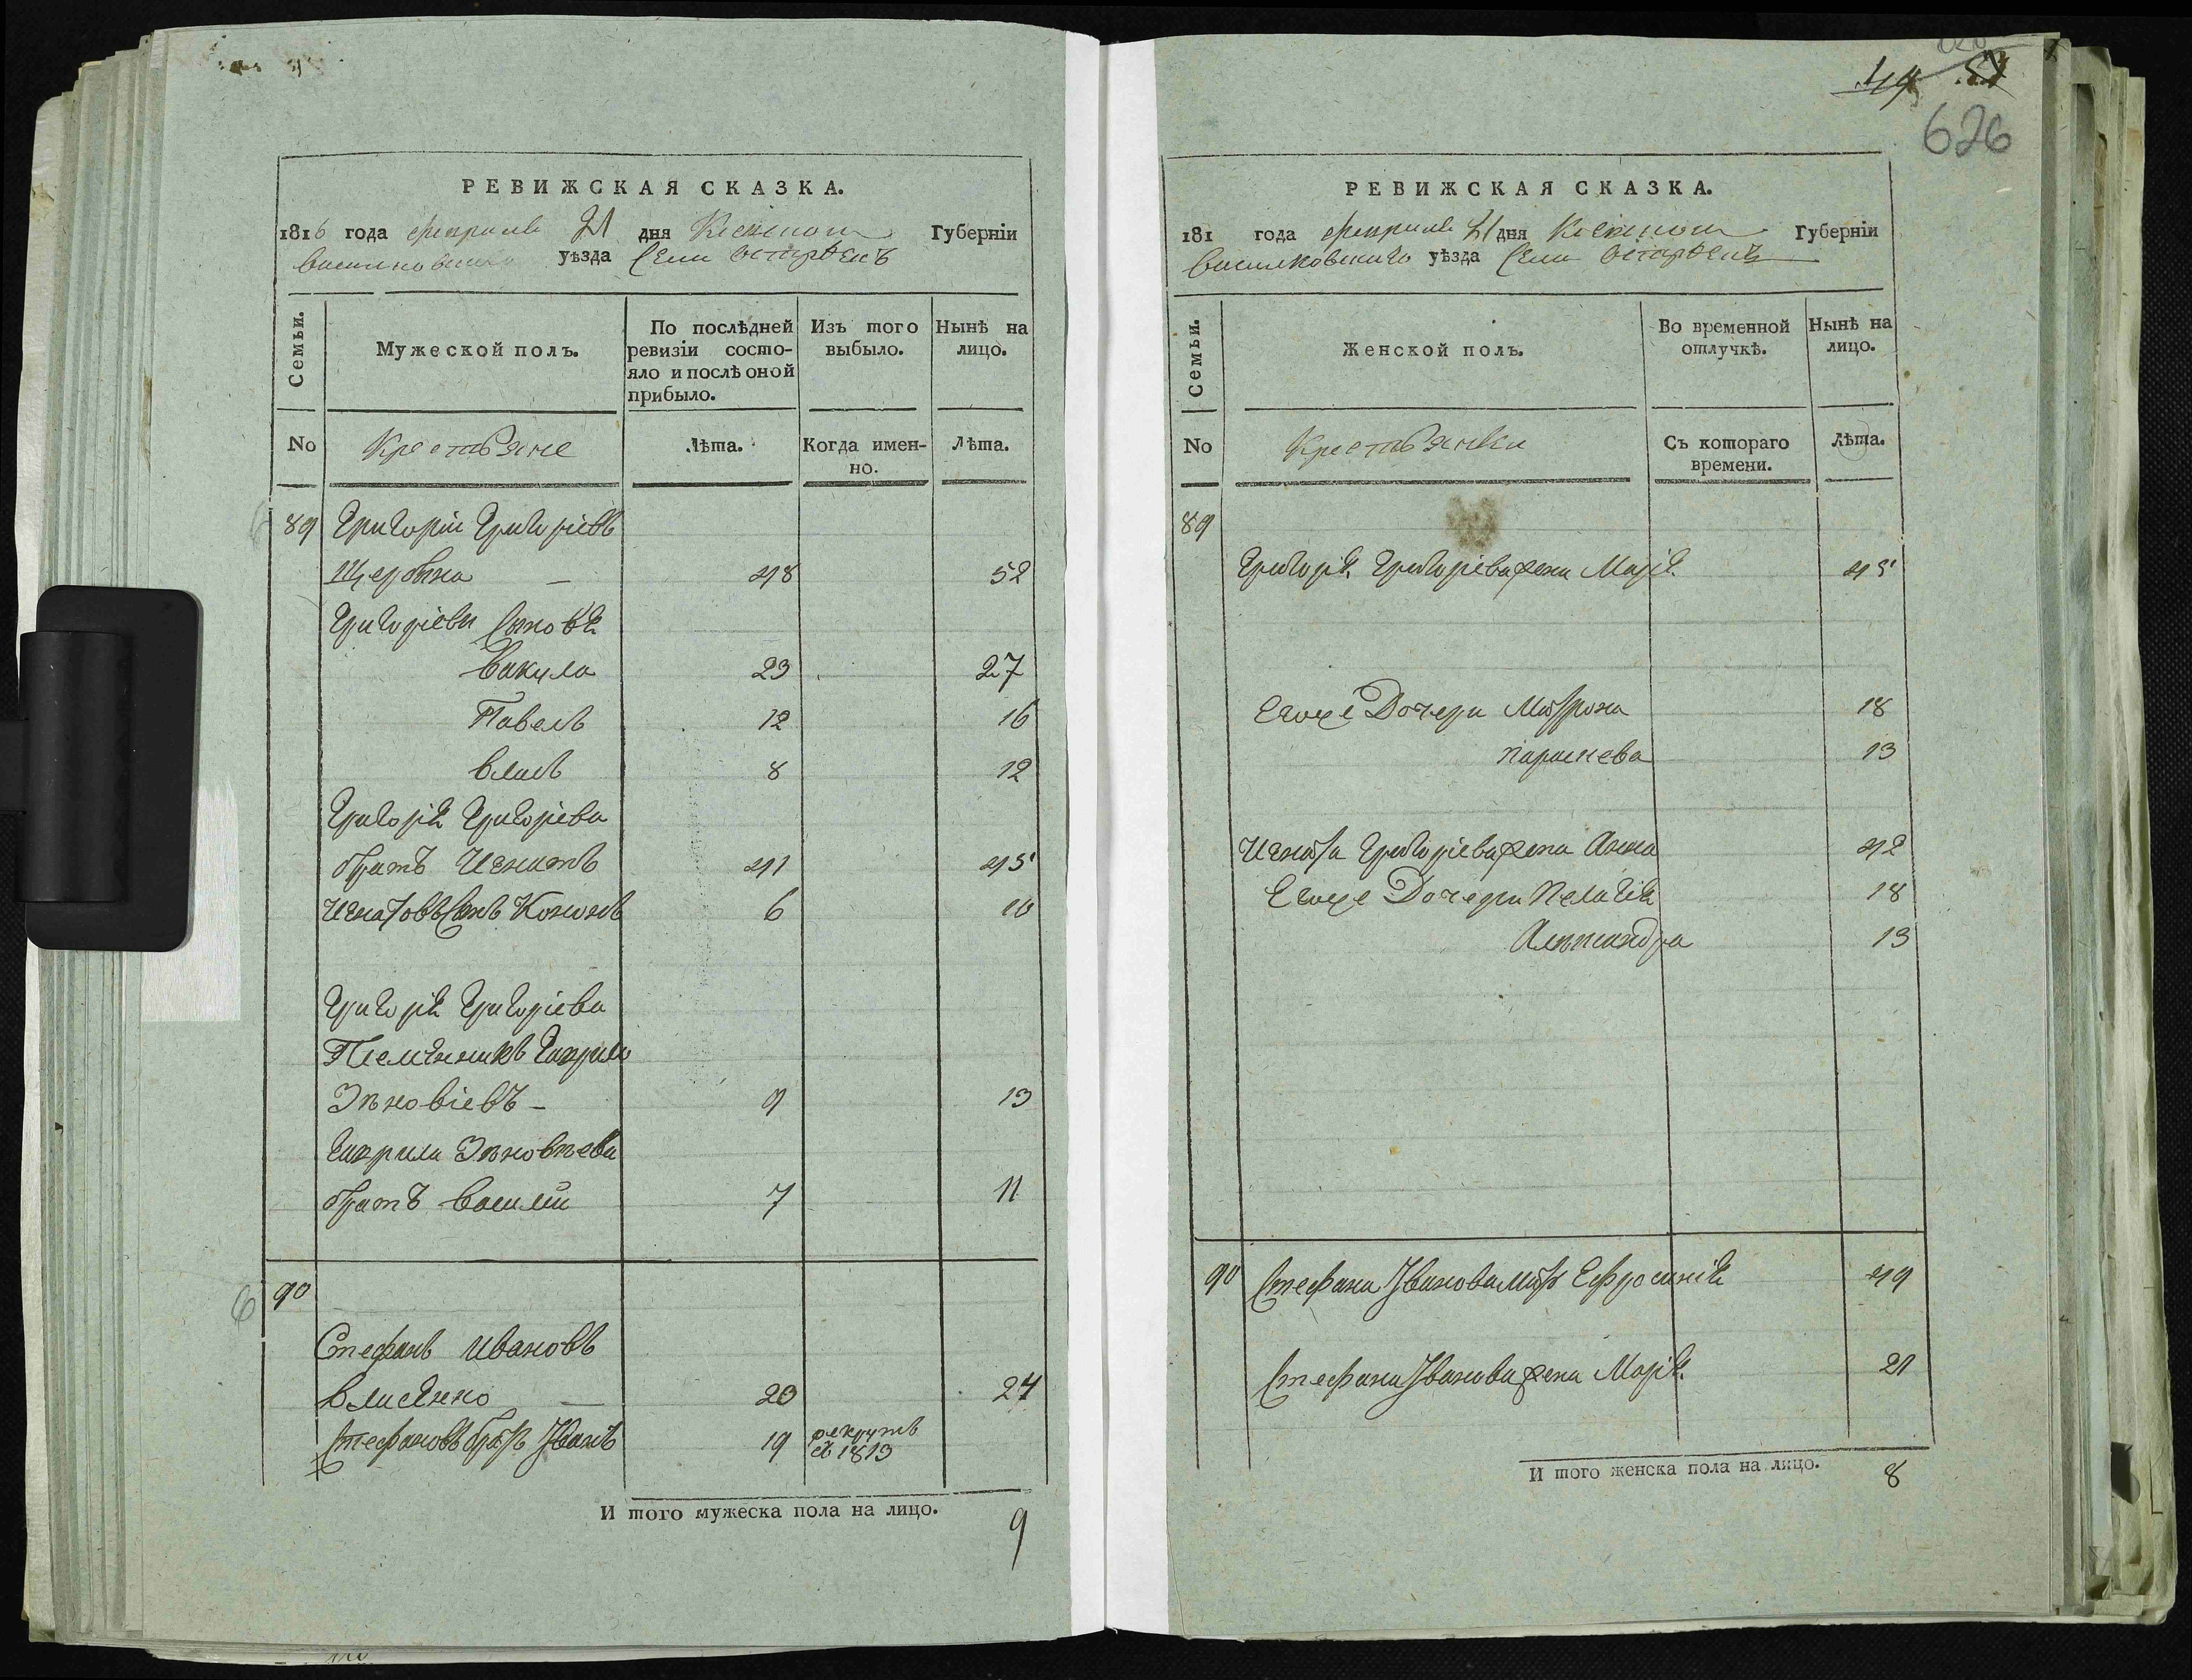 РЕВИЖСКАЯ СКАЗКА.
1816 года февраля 21 дня Киевской Губерніи
Василковскаго уѣзда Села
Семьи.
Мужеской полъ.
По послѣдней ревизіи состояло и послѣ оной прибыло.
Изъ того выбыло.
Нынѣ на лицо.
No
Крестьяне
Лѣта.
Когда именно.
Лѣта.
89 Григорій Григоріевъ
Щербина — 48 52
Григоріевы Сыновѣ
Вакула 23 27
Павелъ 12 16
Власъ 8 12
Григорія Григоріева
братъ Игнатъ 41 45
Игнатовъ Сынъ Кононъ 6 10
Григорія Григоріева
Племѣнникъ Гаврило
Зѣновіевъ — 9 13
Гаврила Зѣновѣева
братъ Василій 7 11
6 90
Стефанъ Ивановъ
Власѣнко — 20 24
Стефановъ братъ Иванъ 19 рекрутъ
въ 1813
И того мужеска пола на лицо. 9
49 57
626
РЕВИЖСКАЯ СКАЗКА.
181 года февраля 21 дня Киевской Губерніи
Василковскаго уѣзда Села
Семьи.
Женской полъ.
Во временной отлучкѣ.
Нынѣ на лицо.
No
Крестьянки
Съ котораго времени.
Лѣта.
89
Григорія Григоріева жена Марія 45
Егоже Дочери Матрона 18
Параскева 13
Игната Григоріева жена Анна 42
Егоже Дочери Пелагія 18
Александра 13
90 Стефана Иванова мать Ефросинія 49
Стефана Иванова жена Марія 21
И того женска пола на лицо. 8